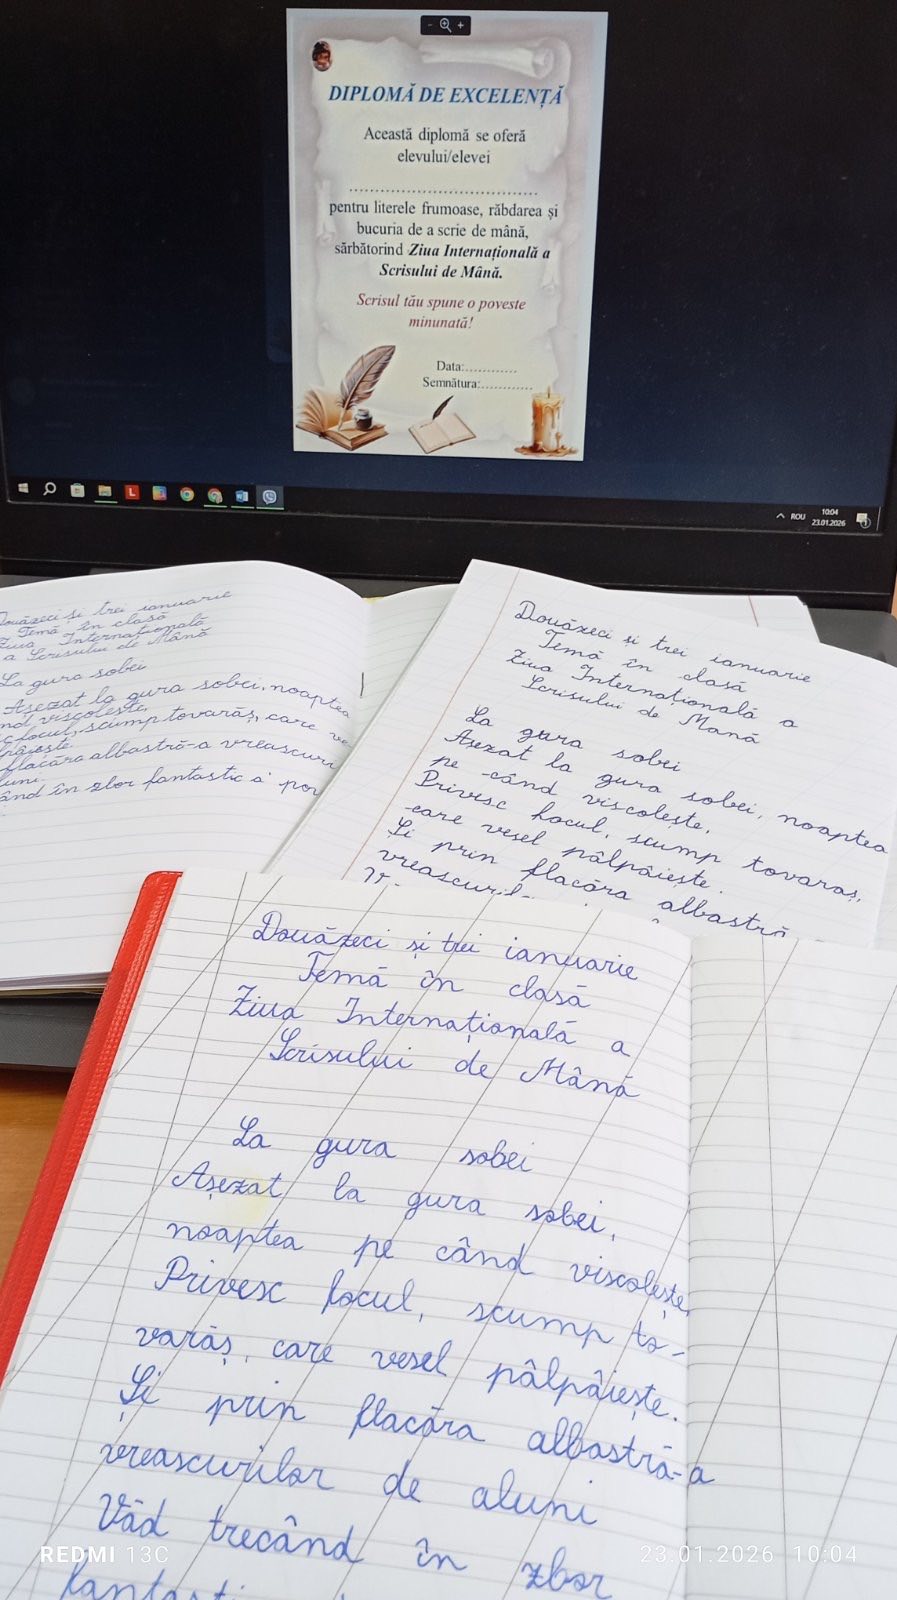 DIPLOMĂ DE EXCELENȚĂ
Această diplomă se oferă
elevului/elevei
......................................
pentru literele frumoase, răbdarea și
bucuria de a scrie de mână,
sărbătorind Ziua Internațională a
Scrisului de Mână.
Scrisul tău spune o poveste
minunată!
Data:............
Semnătura:............
ROU
10:04
23.01.2026
Douăzeci și trei ianuarie
Temă în clasă
Ziua Internațională
a Scrisului de Mână
La gura sobei
Așezat la gura sobei, noaptea
viscolește,
focul, scump tovarăș, care ve
flacăra albastră-a vreascuri
în zbor fantastic a
Douăzeci și trei ianuarie
Temă în clasă
Ziua Internațională a
Scrisului de Mană
La gura sobei
Așezat la gura sobei, noaptea
pe -când viscolește,
Privesc focul, scump tovaraș,
care vesel pâlpâiește.
Și prin flacăra albastră
Douăzeci și trei ianuarie
Temă în clasă
Ziua Internațională a
Scrisului de Mână
La gura sobei
Așezat la gura sobei,
noaptea pe când viscolește,
Privesc focul, scump to-
varăș, care vesel pâlpâiește.
Și prin flacăra albastră-a
vreascurilor de aluni
Văd trecând în zbor
REDMI 13C
23.01.2026 10:04